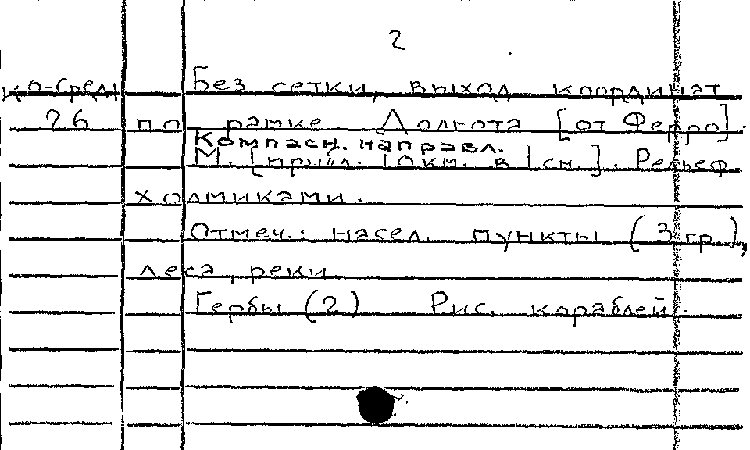 2
К0-сред Без сетки, выход координат
26 по рамке Долгота [от Ферро].
Компасн. направл.
М. [прибл. 10км. в 1см.]. Рельеф
холмиками.
Отмеч.: насел. пункты (3 гр.),
леса, реки.
Гербы (2) Рис. кораблей.